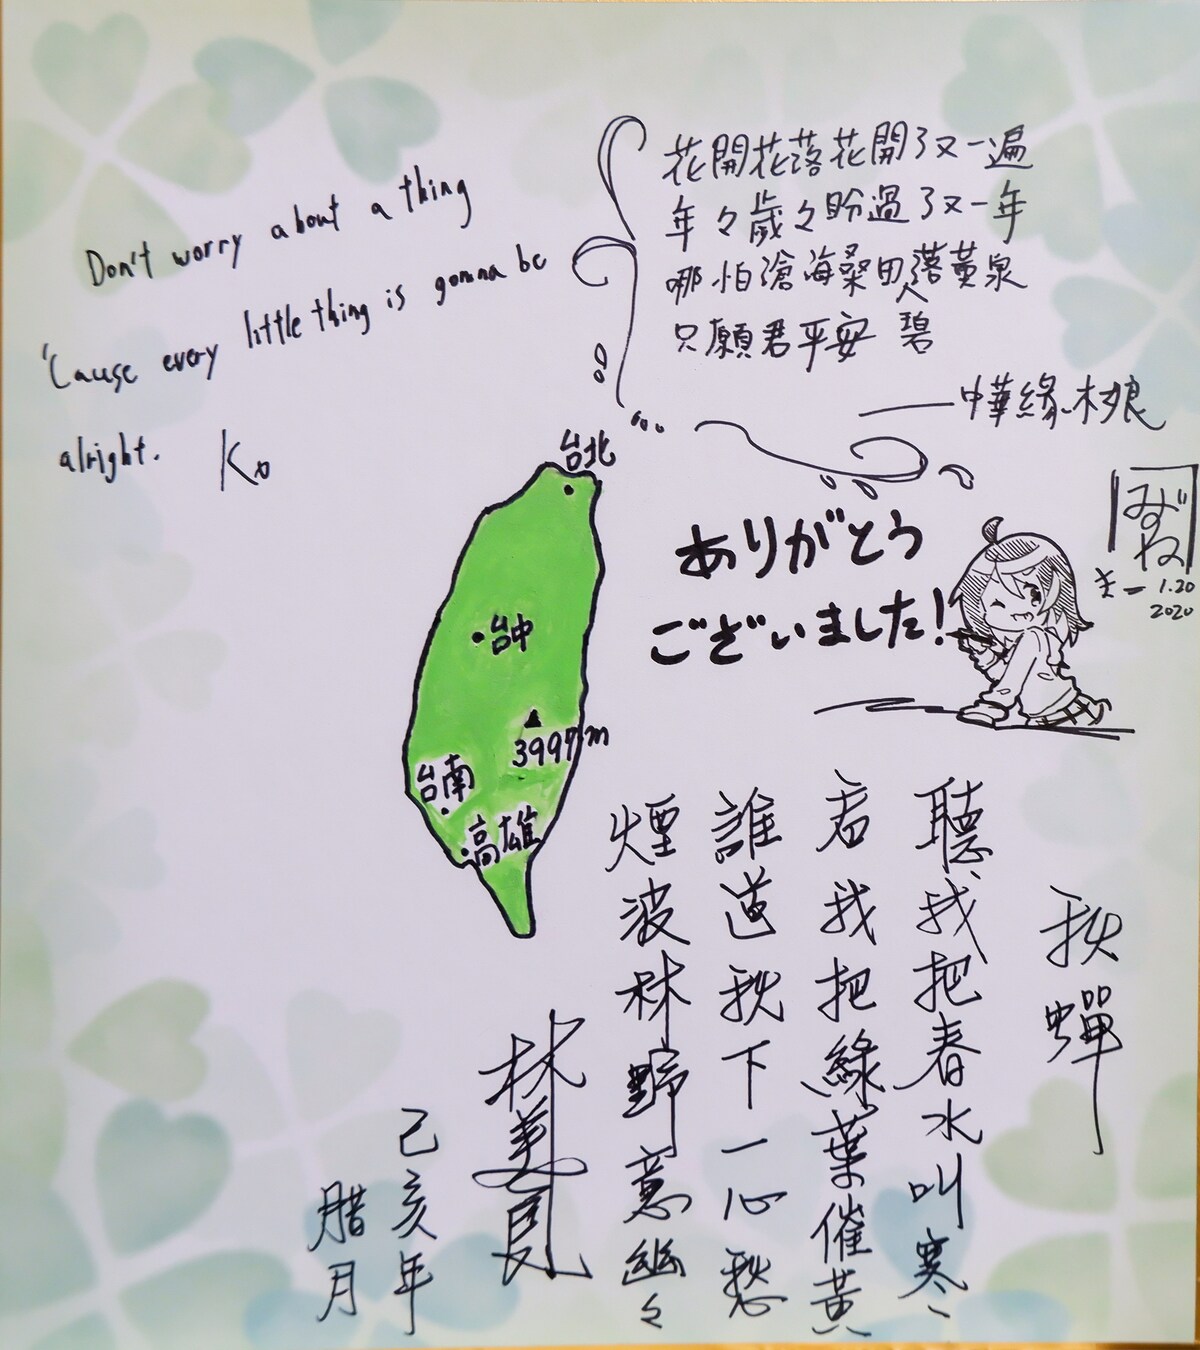 Don't worry about a thing
'Cause every little thing is gonna be
alright.
花開花落花開了又一遍
年々歲々盼過了又一年
哪怕滄海桑田人落黃泉
只願君平安 碧
——中華緣·木娘
みずね
1.20
2020
ありがとう
ございました!
台北
台中
3997m
台南
高雄
秋蟬
聽我把春水叫寒、
看我把綠葉催黃
誰道秋下一心愁
煙波林野意幽々
己亥年
腊月